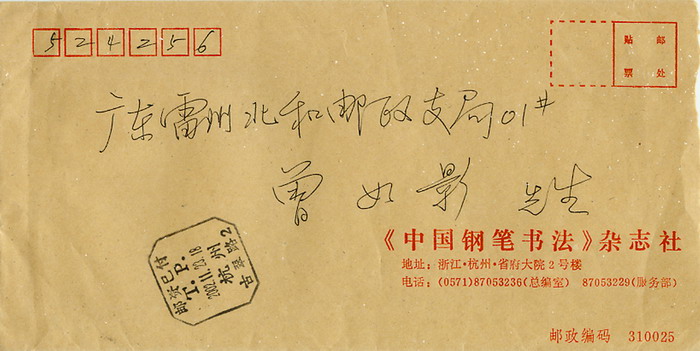 524256
贴 邮
票 处
广东雷州北和邮政支局01#
曾如影 先生
《中国钢笔书法》杂志社
地址：浙江·杭州·省府大院2号楼
电话：(0571)87053236(总编室) 87053229(服务部)
邮政编码 310025
邮资已付
T. P.
2002.11.23.18
杭州
古翠路2